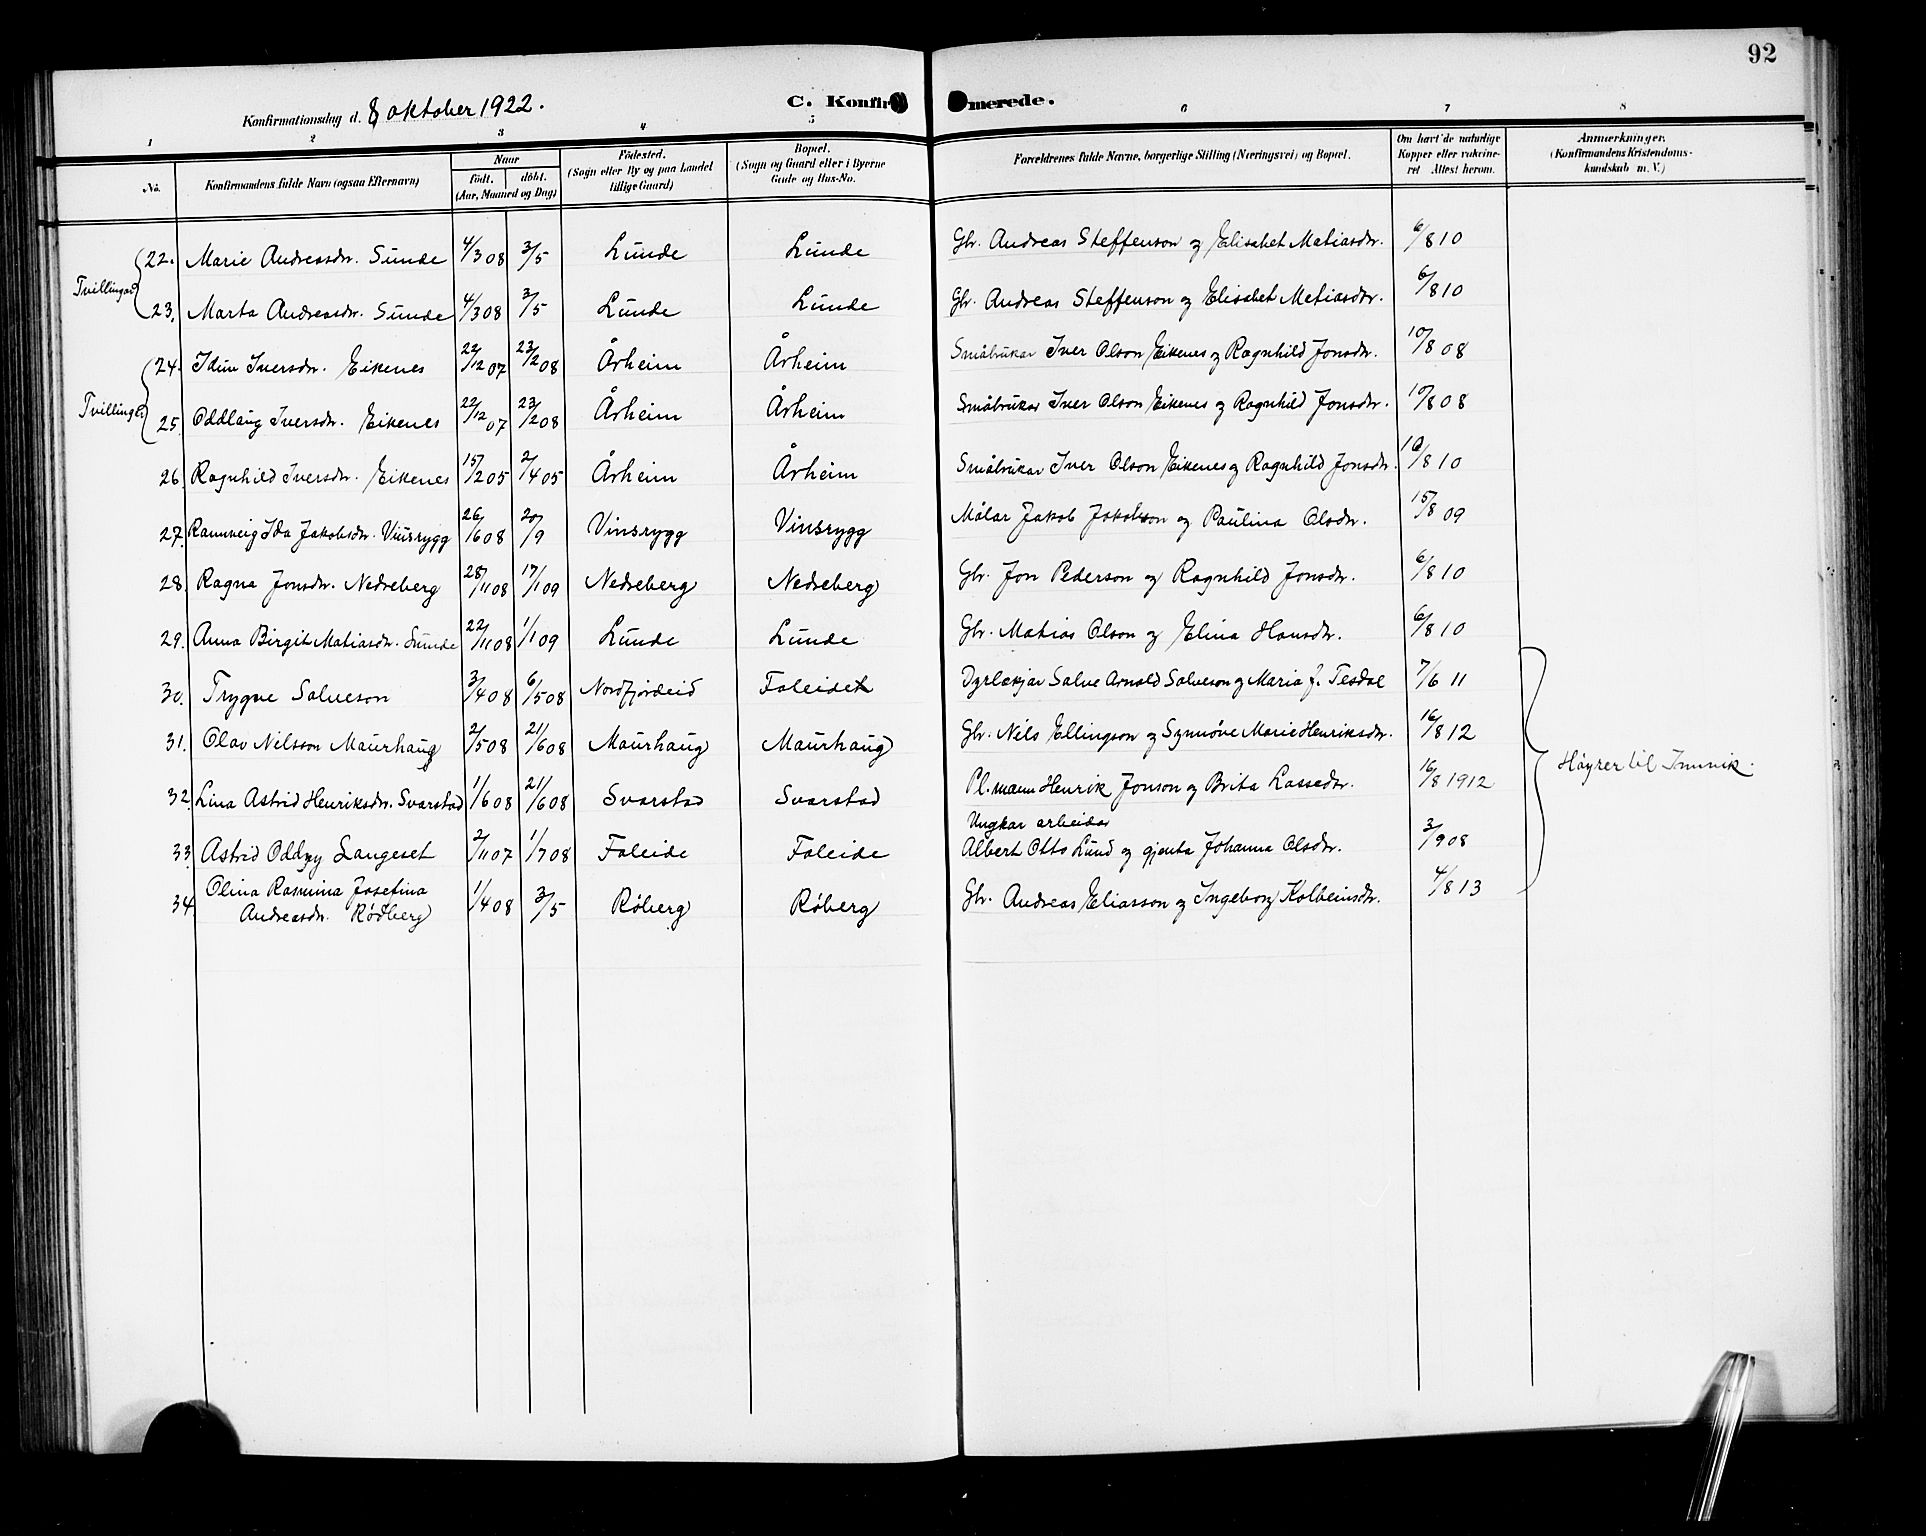 92
Konfirmationsdag d. 8 oktober 1922.
C. Konfirmerede.
1 2 3 4 5 6 7 8
No.
Konfirmandens fulde Navn (ogsaa Efternavn)
Naar
født. døbt.
(Aar, Maaned og Dag)
Fødested.
(Sogn eller By og paa Landet
tillige Gaard)
Bopæl.
(Sogn og Gaard eller i Byerne
Gade og Hus-No.
Forældrenes fulde Navne, borgerlige Stilling (Næringsvei) og Bopæl.
Om havt de naturlige
Kopper eller vakcine-
ret Attest herom.
Anmærkninger.
(Konfirmandens Kristendoms-
kundskab m. V.)
Tvillingar
22. Marie Andreasdr. Sunde 4/3 08 3/5 Lunde Lunde Gbr. Andreas Steffenson og Elisabet Matiasdr. 6/8 10
23. Marta Andreasdr. Sunde 4/3 08 3/5 Lunde Lunde Gbr. Andreas Steffenson og Elisabet Metiasdr. 6/8 10
Tvillingar
24. Idun Iversdr. Eikenes 22/12 07 23/2 08 Årheim Årheim Småbrukar Iver Olson Eikenes og Ragnhild Jonsdr. 10/8 08
25. Oddlaug Iversdr. Eikenes 22/12 07 23/2 08 Årheim Årheim Småbrukar Iver Olson Eikenes og Ragnhild Jonsdr. 10/8 08
26. Ragnhild Iversdr. Eikenes 15/2 05 2/4 05 Årheim Årheim Småbrukar Iver Olson Eikenes og Ragnhild Jonsdr. 10/8 10
27. Rannveig Ida Jakobsdr. Vinsrygg 26/6 08 20/9 Vinsrygg Vinsrygg Målar Jakob Jakobson og Paulina Olsdr. 15/8 09
28. Ragna Jonsdr. Nedreberg 28/11 08 17/1 09 Nedreberg Nedreberg Gbr. Jon Pederson og Ragnhild Jonsdr. 6/8 10
29. Anna Birgit Matiasdr. Sunde 22/11 08 1/1 09 Lunde Lunde Gbr. Matias Olson og Elina Hansdr. 6/8 10
30. Trygve Salveson 3/4 08 6/5 08 Nordfjordeid Faleide Dyrlækjar Salve Arnold Salveson og Maria f. Tesdal 7/6 11
31. Olav Nilsson Maurhaug 2/5 08 21/6 08 Maurhaug Maurhaug Gbr. Nils Ellingson og Synnøve Marie Henriksdr. 16/8 12
Høyrer til Innvik.
32. Lina Astrid Henriksdr. Svarstad 1/6 08 21/6 08 Svarstad Svarstad Pl.mann Henrik Jonson og Brita Lassedr. 16/8 1912
Ungkar arbeidar
33. Astrid Oddny Langeset 2/11 07 1/7 08 Faleide Faleide Albert Otto Lund og gjenta Johanna Olsdr. 3/9 08
Olina Rasmina Josefina
34. Andreasdr. Rødberg 1/4 08 3/5 Røberg Røberg Gbr. Andreas Eliasson og Ingeborg Kolbeinsdr. 4/8 13